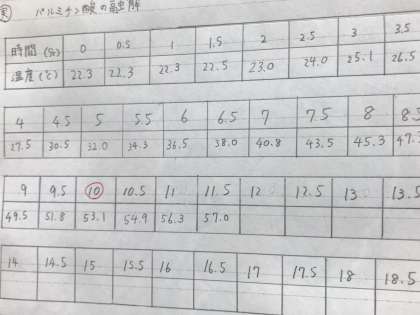 実 パルミチン酸の融解
時間(分) 0 0.5 1 1.5 2 2.5 3 3.5
温度(℃) 22.3 22.3 22.3 22.5 23.0 24.0 25.1 26.5
4 4.5 5 5.5 6 6.5 7 7.5 8
27.5 30.5 32.0 34.3 36.5 38.0 40.8 43.5 45.3
9 9.5 10 10.5 11 11.5 12 12.5 13 13.5
49.5 51.8 53.1 54.9 56.3 57.0
14 14.5 15 15.5 16 16.5 17 17.5 18 18.5